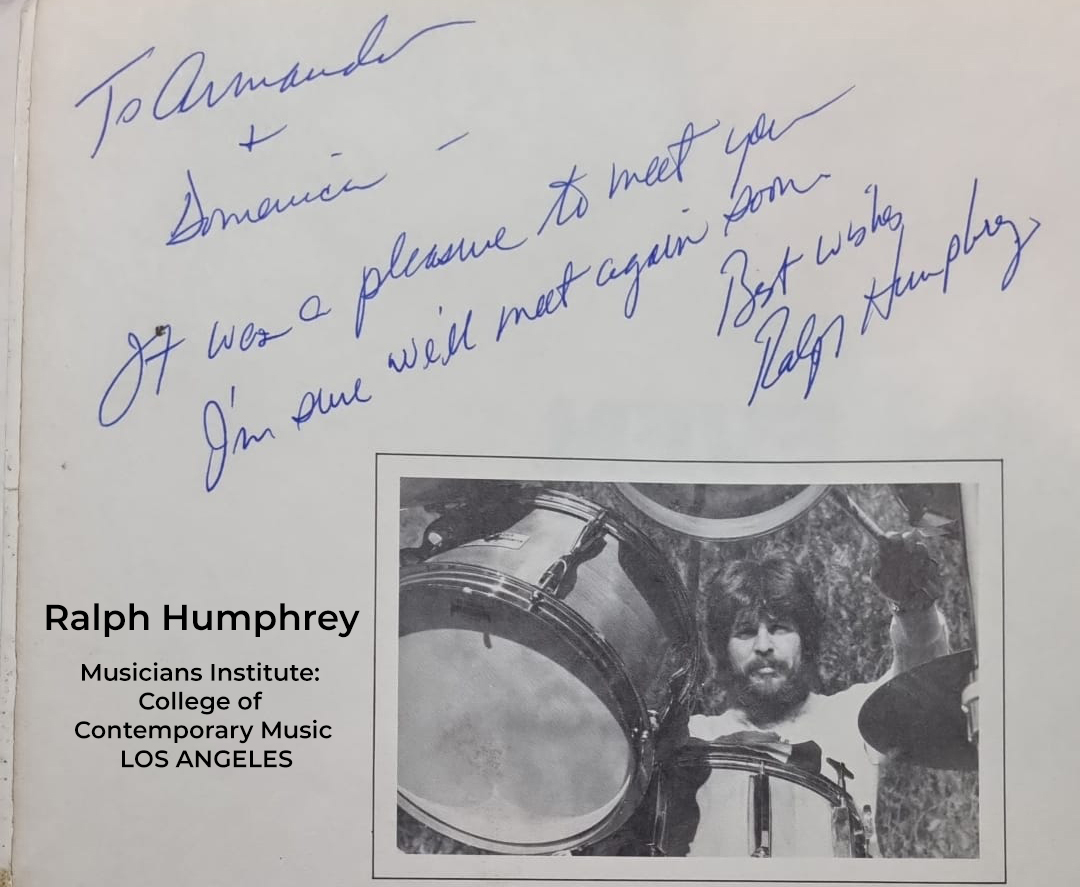 To Armando
+
Domenica -
It was a pleasure to meet you
I'm sure we'll meet again soon.
Best wishes
Ralph Humphrey
Ralph Humphrey
Musicians Institute:
College of
Contemporary Music
LOS ANGELES